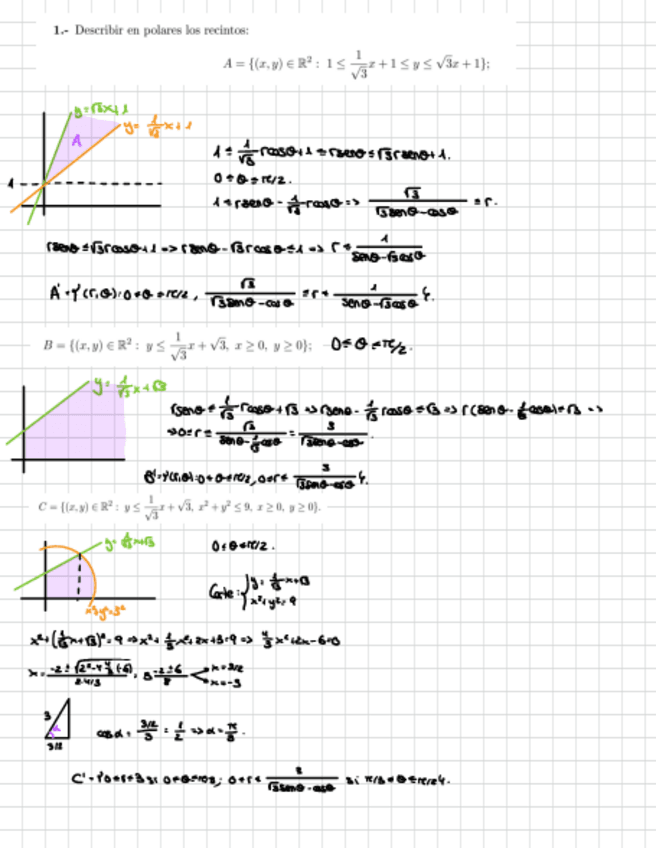 1.- Describir en polares los recintos:
A = {(x, y) ∈ ℝ² : 1 ≤ 1/√3 x + 1 ≤ y ≤ √3x + 1};
y=√3x+1
y= 1/√3 x+1
A
1
1 ≤ 1/√3 rcosθ+1 ≤ rsenθ ≤ √3 rsenθ+1.
0 ≤ θ ≤ π/2.
1 ≤ rsenθ - 1/√3 rcosθ => √3/(√3senθ-cosθ) ≤ r.
rsenθ ≤ √3rcosθ+1 => rsenθ-√3rcosθ ≤ 1 => r ≤ 1/(senθ-√3cosθ)
A'={(r,θ): 0≤θ≤π/2, √3/(√3senθ-cosθ) ≤ r ≤ 1/(senθ-√3cosθ)}.
B = {(x, y) ∈ ℝ² : y ≤ 1/√3 x + √3, x ≥ 0, y ≥ 0}; 0 ≤ θ ≤ π/2.
y= 1/√3 x+√3
rsenθ ≤ 1/√3 rcosθ+√3 => rsenθ - 1/√3 rcosθ ≤ √3 => r(senθ - 1/√3 cosθ) ≤ √3 =>
=> 0≤r≤ √3/(senθ-1/√3cosθ) = 3/(√3senθ-cosθ).
B'={(r,θ): 0≤θ≤π/2, 0≤r≤ 3/(√3senθ-cosθ)}.
C = {(x, y) ∈ ℝ² : y ≤ 1/√3 x + √3, x² + y² ≤ 9, x ≥ 0, y ≥ 0}.
y= 1/√3x+√3
0≤θ≤π/2.
Corte: {y= 1/√3 x+√3
x²+y²=9
x²+y²=3²
x²+(1/√3x+√3)²=9 => x²+1/3x²+2x+3=9 => 4/3x²+2x-6=0
x= (-2±√(2²-4·4/3(-6)))/(2·4/3)
x=3/2
x=-3
3
α
3/2
cosα = (3/2)/3 = 1/2 => α = π/3.
C'={0≤r≤3 si 0≤θ≤π/3; 0≤r≤ 3/(√3senθ-cosθ) si π/3≤θ≤π/2}.